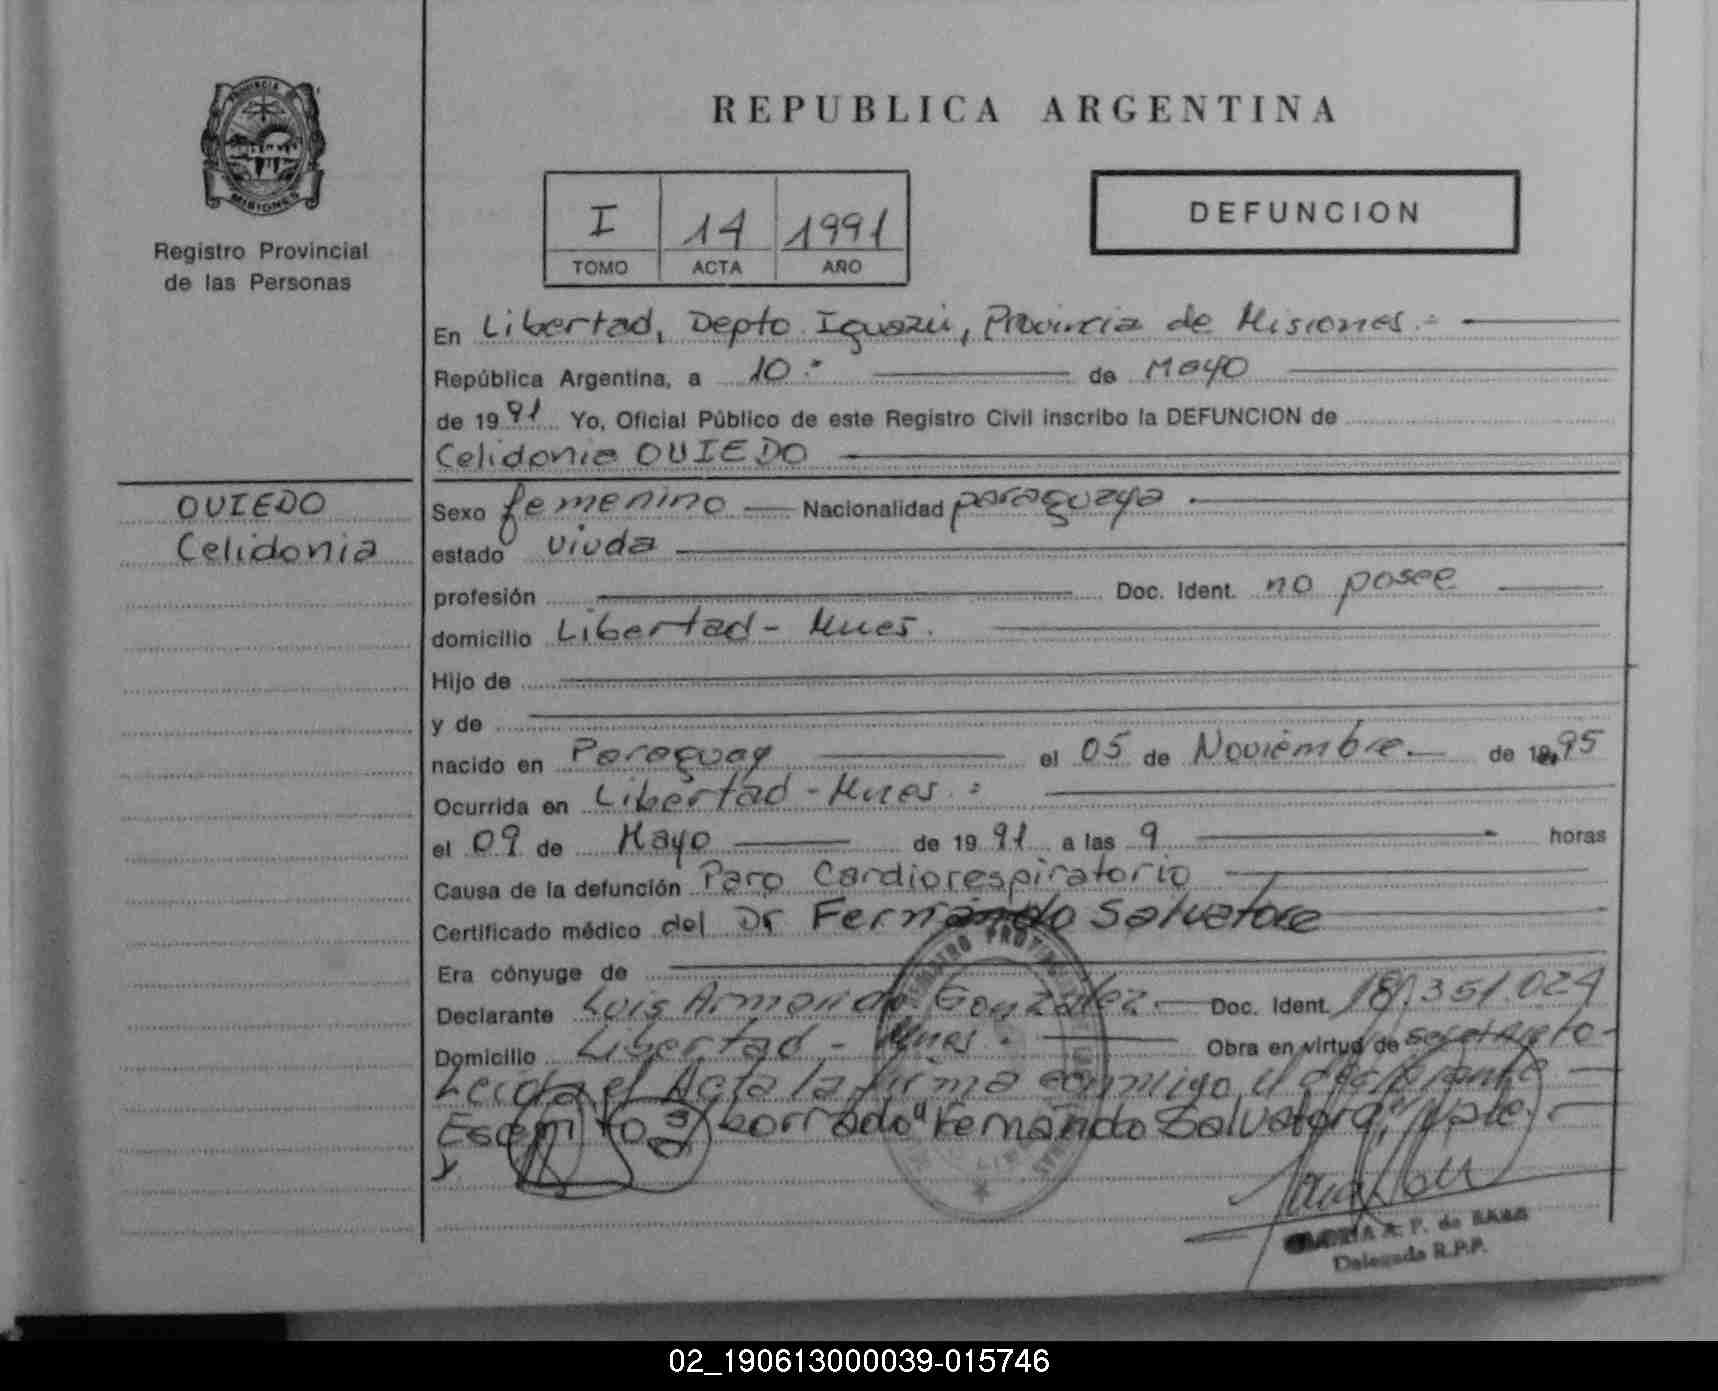 PROVINCIA DE
MISIONES
Registro Provincial
de las Personas
OVIEDO
Celidonia
REPUBLICA ARGENTINA
I 14 1991
TOMO ACTA AÑO
DEFUNCION
En Libertad, Depto Iguazú, Provincia de Misiones.=
República Argentina, a 10.- de Mayo
de 1991 Yo, Oficial Público de este Registro Civil inscribo la DEFUNCION de
Celidonia OVIEDO
Sexo femenino Nacionalidad paraguaya
estado viuda
profesión Doc. Ident. no posee
domicilio Libertad - Mnes.
Hijo de
y de
nacido en Paraguay el 05 de Noviembre de 1895
Ocurrida en Libertad - Mnes.=
el 09 de Mayo de 1991 a las 9 horas
Causa de la defunción Paro Cardiorespiratorio
Certificado médico del Dr Fernando Salvatore
Era cónyuge de
Declarante Luis Armando Gonzalez Doc. Ident. 18.351.024
Domicilio Libertad - Mnes. Obra en virtud de
Leida el Acta la firma conmigo el declarante
borrado "Fernando Salvatore" Vale.
A. P. de
Delegada R.P.P.
02_190613000039-015746